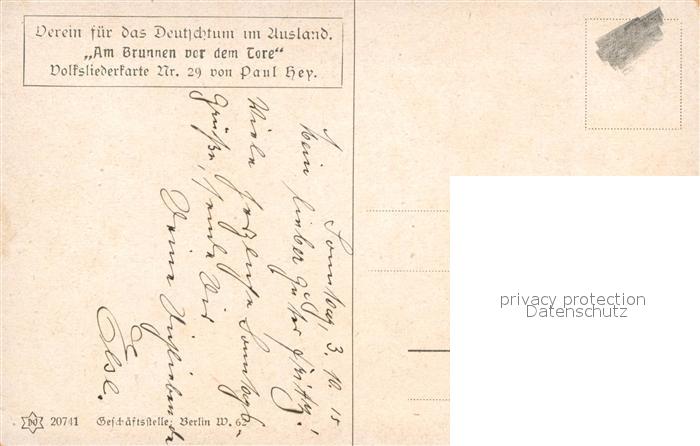 Verein für das Deutschtum im Ausland.
„Am Brunnen vor dem Tore“
Volksliederkarte Nr. 29 von Paul Hey.
Sonntag, 3. 10. 15
Mein lieber guter Fritz!
Viele herzliche Sonntags-
grüße, sendet Dir
Deine Dichliebende
Else.
privacy protection
Datenschutz
20741 Geschäftsstelle: Berlin W. 62